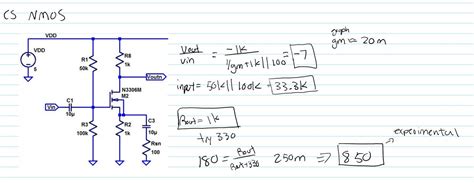 CS NMOS
VDD
VDD
5
R1
50k
R8
1k
Voutn
N3306M
M2
Vin
C1
10µ
R3
100k
R2
1k
C3
10µ
Rsn
100
Vout / Vin = -1k / (1/gm + 1k || 100) = -7
graph
gm ≈ 20m
input = 50k || 100k = 33.3k
Rout = 1k
try 330
180 = Rout / Rout+330 250m ⇒ 850
experimental